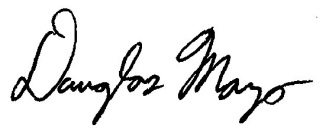 Douglas Mayo